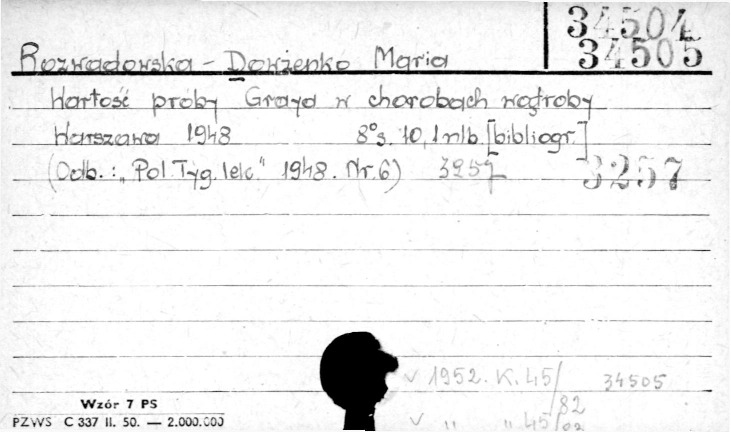 34504
34505
Rozwadowska - Dowżenko Maria
Wartość próby Graya w chorobach wątroby
Warszawa 1948 8° s. 10, 1 nlb. [bibliogr.]
(Odb.: „Pol. Tyg. lek." 1948. Nr. 6) 3257 3257
v 1952. K. 45/82 34505
v " " 45/
Wzór 7 PS
PZWS C 337 II. 50. — 2.000.000